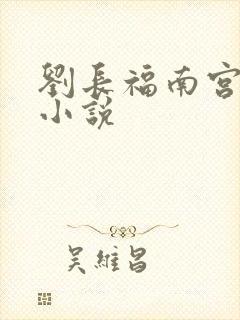 劉長福南宮
小說
吴維昌